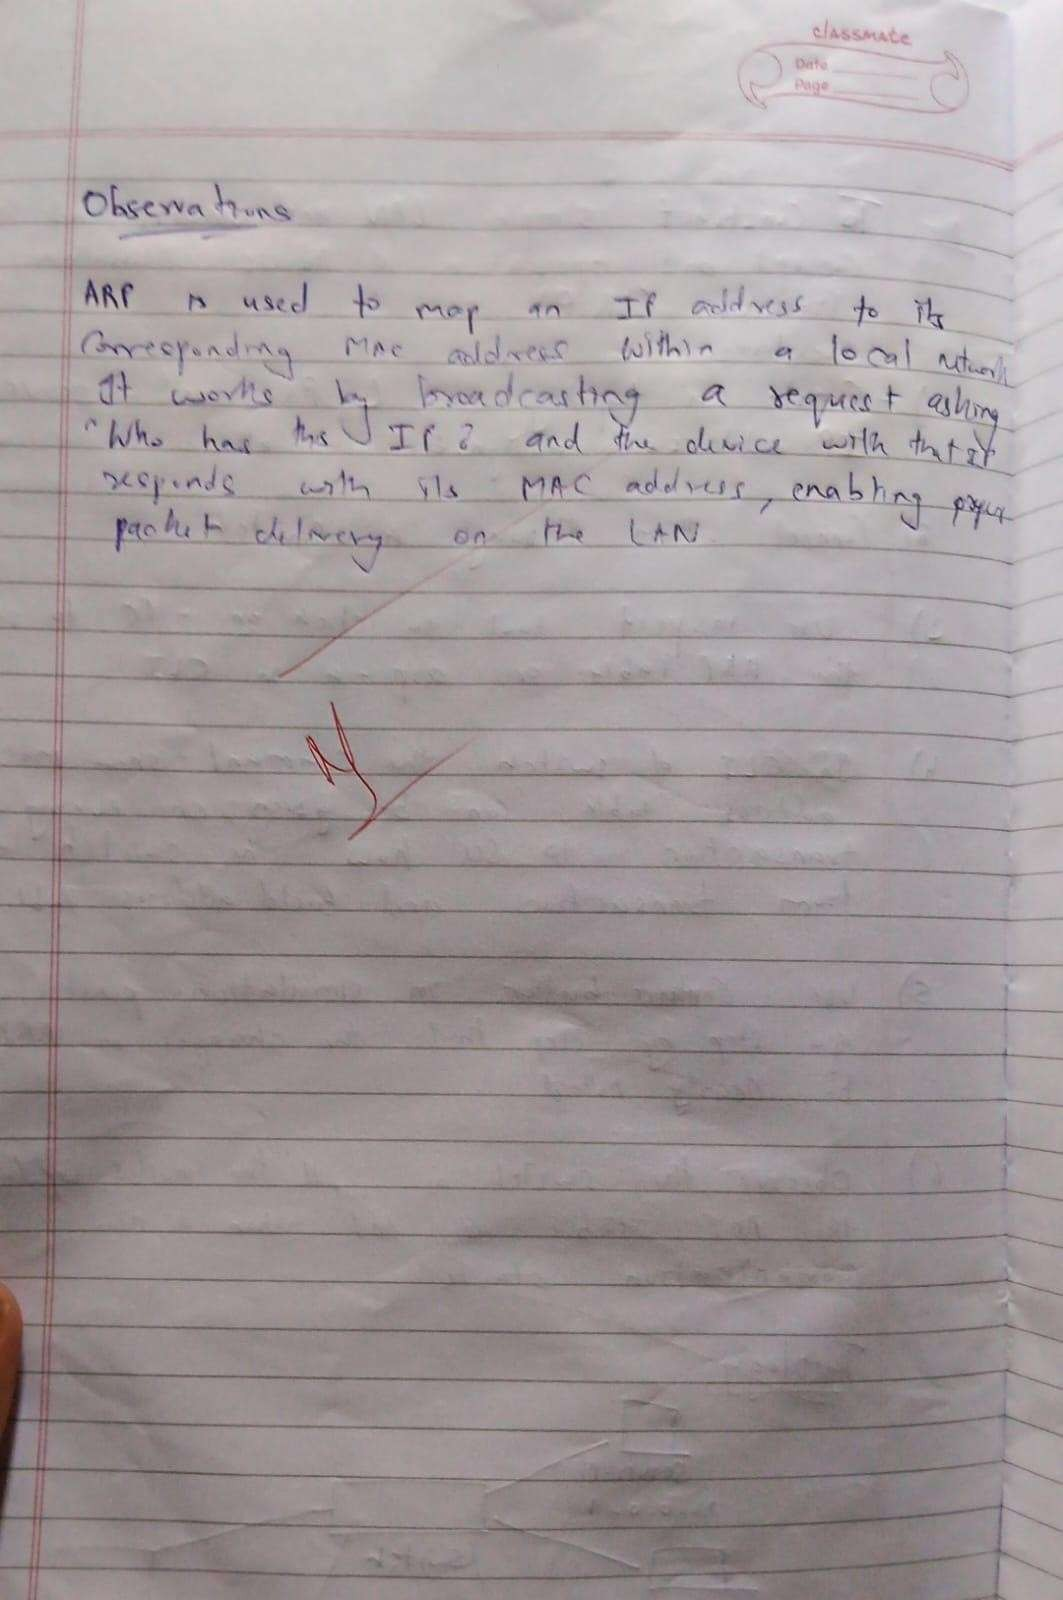 classmate
Date
Page
Observations
ARP is used to map an IP address to its
Corresponding MAC address within a local network
It works by broadcasting a request asking
"Who has this IP? and the device with that IP
responds with its MAC address, enabling proper
packet delivery on the LAN